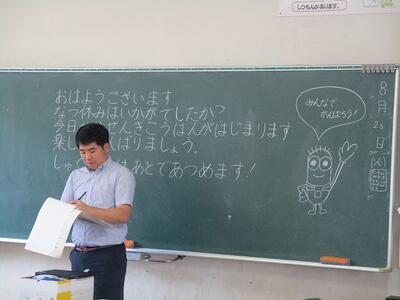 しつもんがあります。
おはようございます
なつ休みはいかがでしたか?
今日 せんきこうはんがはじまります
楽し んばりましょう。
しゅ はあとであつめます!
みんなで
がんばろう!
8
月
26
日
(火)